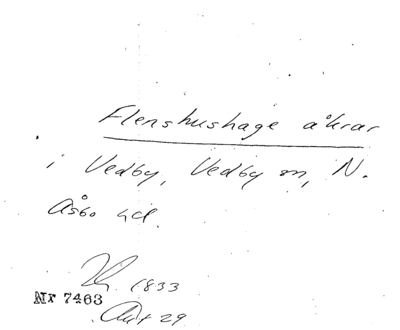 Flenshushage åkrar
i Vedby, Vedby sn, N.
Åsbo hd.
1833
Nr 7463
29